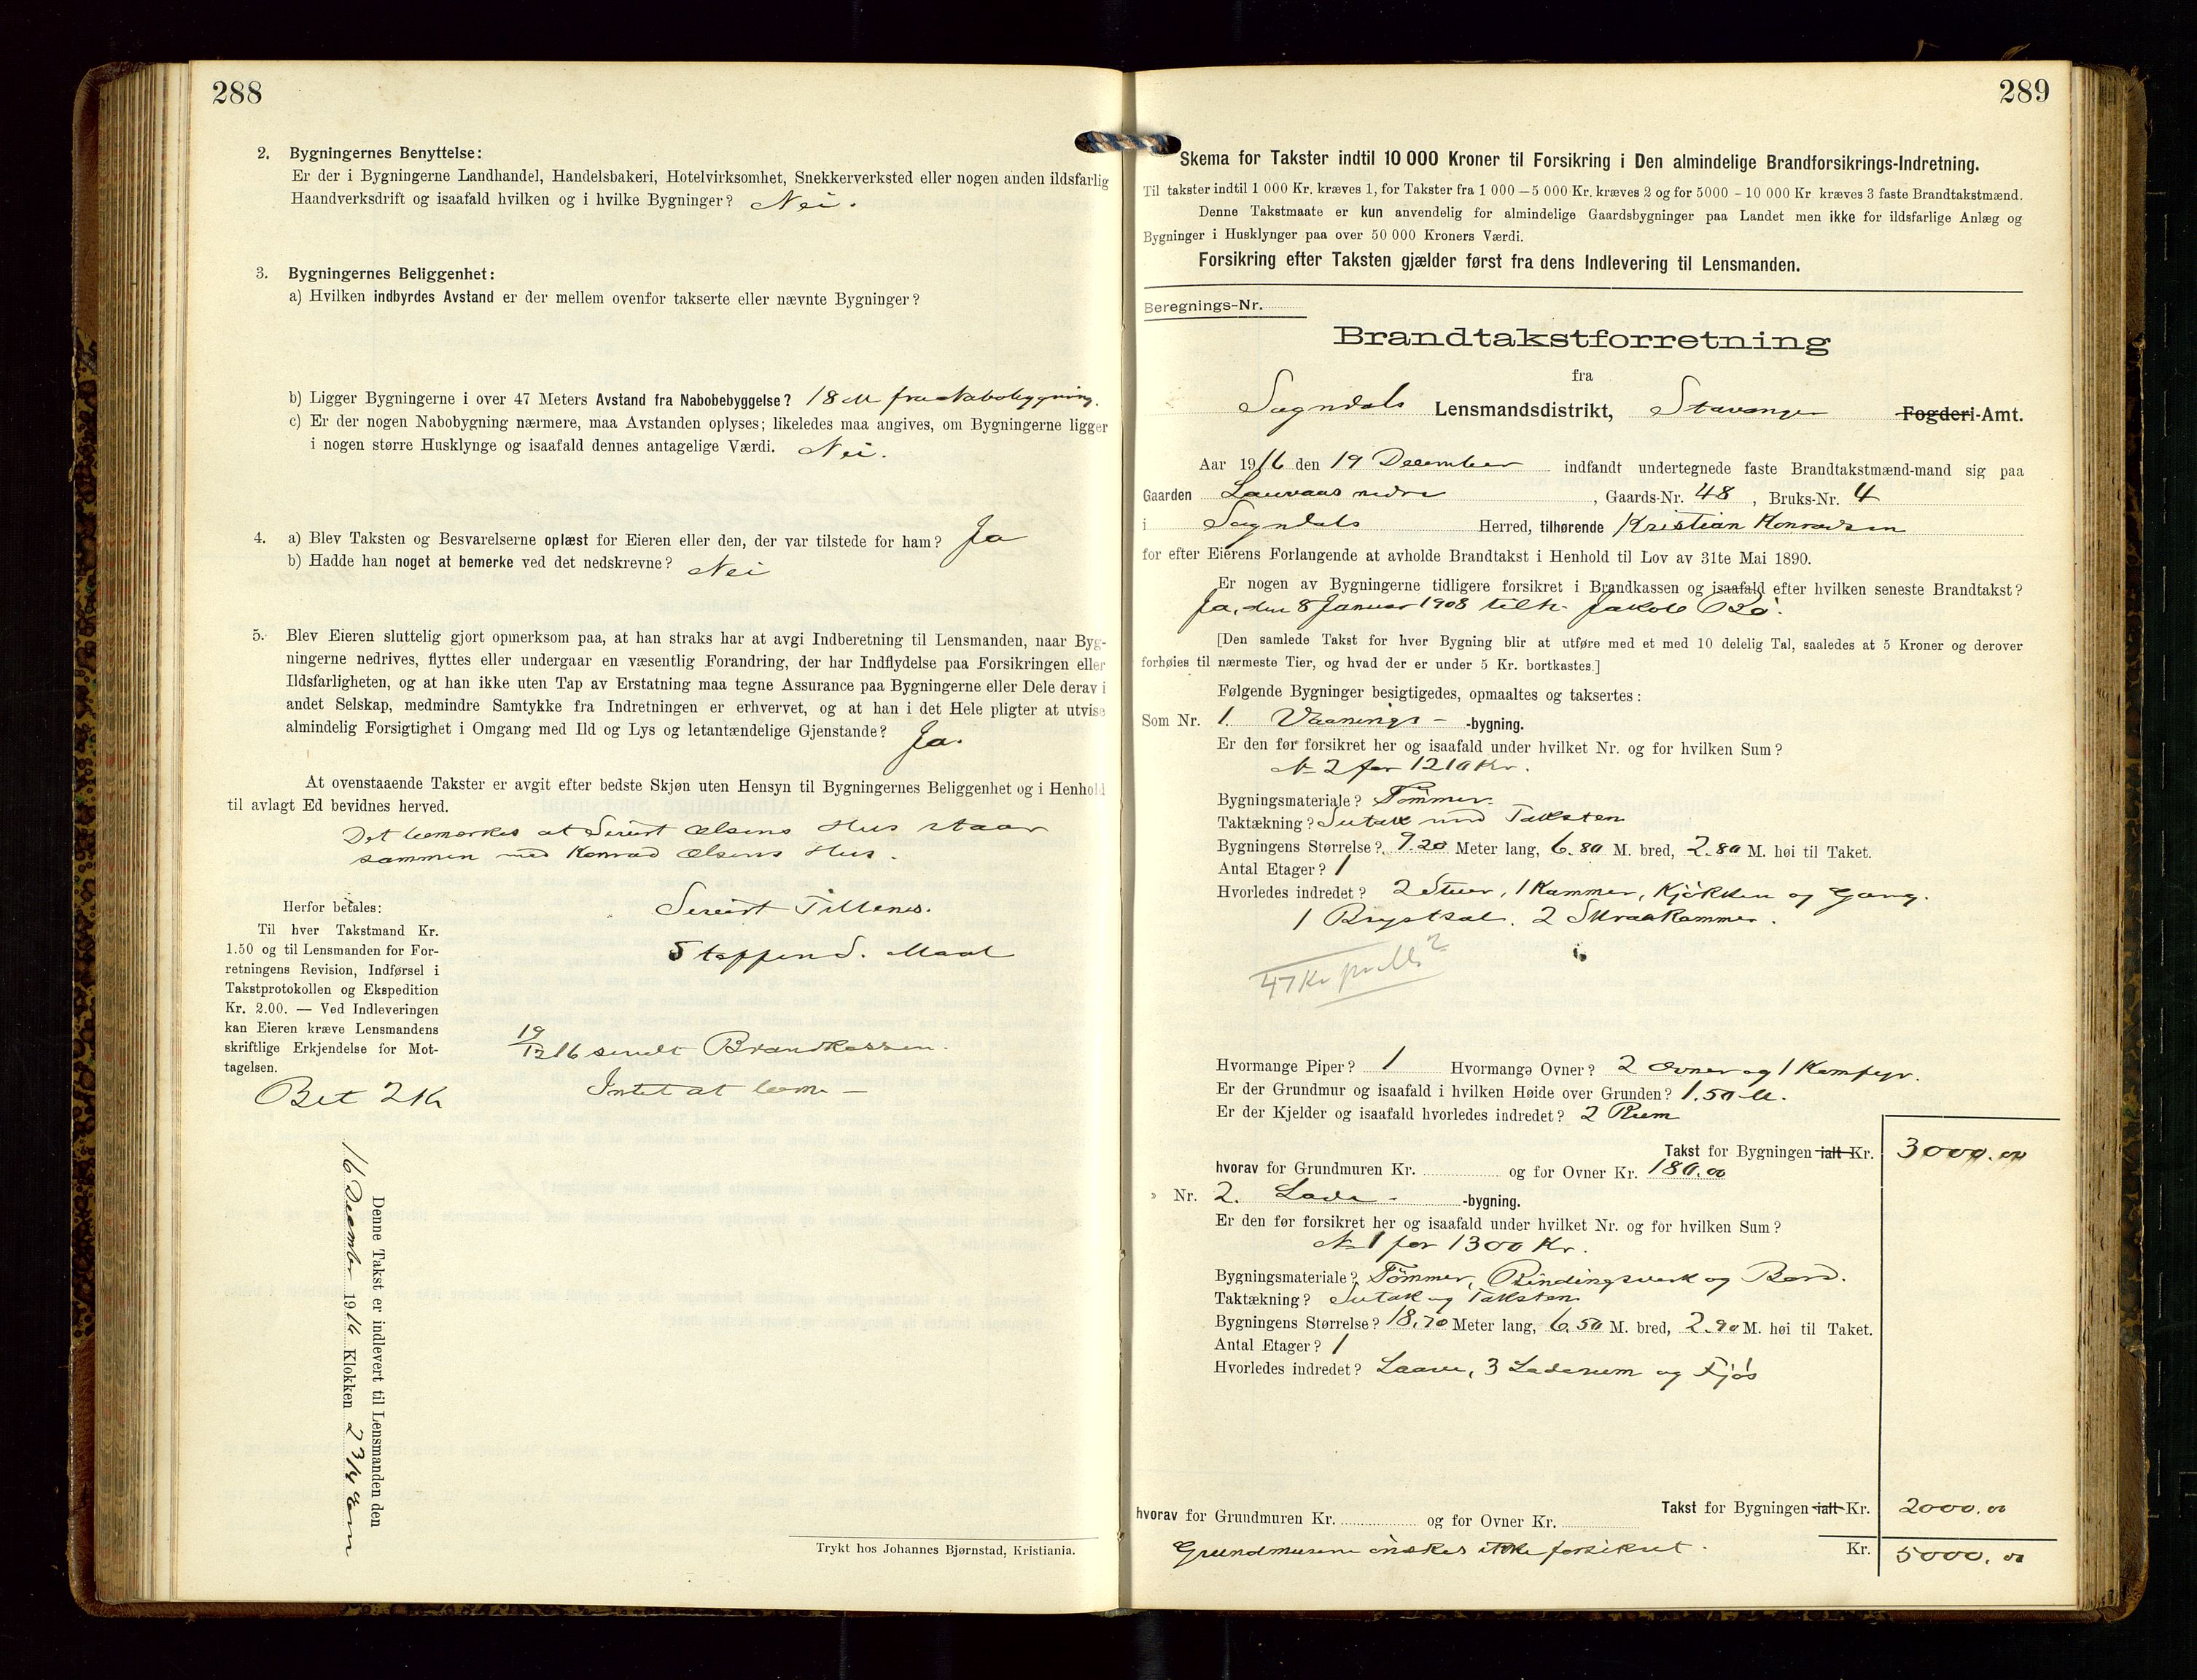 288
2. Bygningernes Benyttelse:
Er der i Bygningerne Landhandel, Handelsbakeri, Hotelvirksomhet, Snekkerverksted eller nogen anden ildsfarlig
Haandverksdrift og isaafald hvilken og i hvilke Bygninger? Nei.
3. Bygningernes Beliggenhet:
a) Hvilken indbyrdes Avstand er der mellem ovenfor takserte eller nævnte Bygninger?
b) Ligger Bygningerne i over 47 Meters Avstand fra Nabobebyggelse? 18 M fra Nabobygning.
c) Er der nogen Nabobygning nærmere, maa Avstanden oplyses; likeledes maa angives, om Bygningerne ligger
i nogen større Husklynge og isaafald dennes antagelige Værdi. Nei.
4. a) Blev Taksten og Besvarelserne oplæst for Eieren eller den, der var tilstede for ham? Ja
b) Hadde han noget at bemerke ved det nedskrevne? Nei
5. Blev Eieren sluttelig gjort opmerksom paa, at han straks har at avgi Indberetning til Lensmanden, naar Byg-
ningerne nedrives, flyttes eller undergaar en væsentlig Forandring, der har Indflydelse paa Forsikringen eller
Ildsfarligheten, og at han ikke uten Tap av Erstatning maa tegne Assurance paa Bygningerne eller Dele derav i
andet Selskap, medmindre Samtykke fra Indretningen er erhvervet, og at han i det Hele pligter at utvise
almindelig Forsigtighet i Omgang med Ild og Lys og letantændelige Gjenstande? Ja.
At ovenstaaende Takster er avgit efter bedste Skjøn uten Hensyn til Bygningernes Beliggenhet og i Henhold
til avlagt Ed bevidnes herved.
Det bemærkes at Sivert Olsens Hus staar
sammen med Konrad Olsens Hus.
Sivert Tillenes.
Steffen S. Maal
Herfor betales:
Til hver Takstmand Kr.
1.50 og til Lensmanden for For-
retningens Revision, Indførsel i
Takstprotokollen og Ekspedition
Kr. 2.00. — Ved Indleveringen
kan Eieren kræve Lensmandens
skriftlige Erkjendelse for Mot-
tagelsen.
19/12 16 sendt Brandkassen.
Bet 2 Kr
Intet at bem —
Denne Takst er indlevert til Lensmanden den
16 December 1916 Klokken 2 3/4 Em
Trykt hos Johannes Bjørnstad, Kristiania.
289
Skema for Takster indtil 10 000 Kroner til Forsikring i Den almindelige Brandforsikrings-Indretning.
Til takster indtil 1 000 Kr. kræves 1, for Takster fra 1 000 – 5 000 Kr. kræves 2 og for 5000 - 10 000 Kr kræves 3 faste Brandtakstmænd.
Denne Takstmaate er kun anvendelig for almindelige Gaardsbygninger paa Landet men ikke for ildsfarlige Anlæg og
Bygninger i Husklynger paa over 50 000 Kroners Værdi.
Forsikring efter Taksten gjælder først fra dens Indlevering til Lensmanden.
Beregnings-Nr.
Brandtakstforretning
fra
Sogndals Lensmandsdistrikt, Stavanger Fogderi-Amt.
Aar 1916 den 19 December indfandt undertegnede faste Brandtakstmænd-mand sig paa
Gaarden Lauvaas nedre, Gaards-Nr. 48, Bruks-Nr. 4
i Sogndals Herred, tilhørende Kristian Konradsen
for efter Eierens Forlangende at avholde Brandtakst i Henhold til Lov av 31te Mai 1890.
Er nogen av Bygningerne tidligere forsikret i Brandkassen og isaafald efter hvilken seneste Brandtakst?
Ja, den 8 Januar 1908 tilh. Jakob Bø.
[Den samlede Takst for hver Bygning blir at utføre med et med 10 delelig Tal, saaledes at 5 Kroner og derover
forhøies til nærmeste Tier, og hvad der er under 5 Kr. bortkastes.]
Følgende Bygninger besigtigedes, opmaaltes og taksertes:
Som Nr. 1 Vaanings- -bygning.
Er den før forsikret her og isaafald under hvilket Nr. og for hvilken Sum?
N 2 for 1210 Kr.
Bygningsmateriale? Tömmer.
Taktækning? Sutak med Taksten
Bygningens Størrelse? 9.20 Meter lang, 6.80 M. bred, 2.80 M. høi til Taket.
Antal Etager? 1
Hvorledes indredet? 2 Stuer, 1 Kammer, Kjökken og Gang.
1 Brystsal. 2 Skraakammer.
47 Kr pr M²
Hvormange Piper? 1 Hvormange Ovner? 2 Ovner og 1 Komfyr.
Er der Grundmur og isaafald i hvilken Høide over Grunden? 1.50 M.
Er der Kjelder og isaafald hvorledes indredet? 2 Rum
Takst for Bygningen ialt Kr. 3000.00
hvorav for Grundmuren Kr. og for Ovner Kr. 180.00
» Nr. 2. Lade- -bygning.
Er den før forsikret her og isaafald under hvilket Nr. og for hvilken Sum?
N 1 for 1300 Kr.
Bygningsmateriale? Tömmer, Bindingsverk og Bord.
Taktækning? Sutak og Taksten
Bygningens Størrelse? 18,70 Meter lang, 6.50 M. bred, 2.90 M. høi til Taket.
Antal Etager? 1
Hvorledes indredet? Laave, 3 Laderum og Fjös
Takst for Bygningen ialt Kr. 2000.00
hvorav for Grundmuren Kr. og for Ovner Kr.
Grundmurene önskes ikke forsikret. Kr. 5000.00